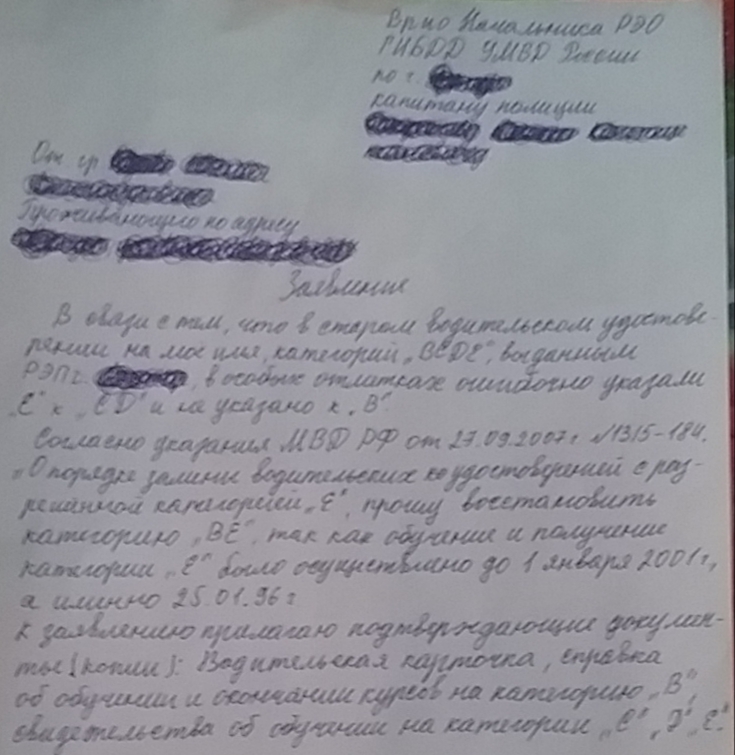 Врио Начальника РЭО
ГИБДД УМВД России
по г.
капитану полиции
От гр.
Проживающего по адресу
Заявление
В связи с тем, что в старом водительском удостове-
рении на мое имя, категорий „BCDE", выданным
РЭП г. , в особых отметках ошибочно указали
„E" к „CD" и не указано к „B".
Согласно указания МВД РФ от 27.09.2007 г. №13/5-184,
„О порядке замены водительских удостоверений с раз-
решенной категорией „E", прошу восстановить
категорию „BE", так как обучение и получение
категории „E" было осуществлено до 1 января 2001 г.,
а именно 25.01.96 г.
К заявлению прилагаю подтверждающие докумен-
ты (копии): Водительская карточка, справка
об обучении и окончании курсов на категорию „B",
свидетельства об обучении на категории „C", „D", „E".